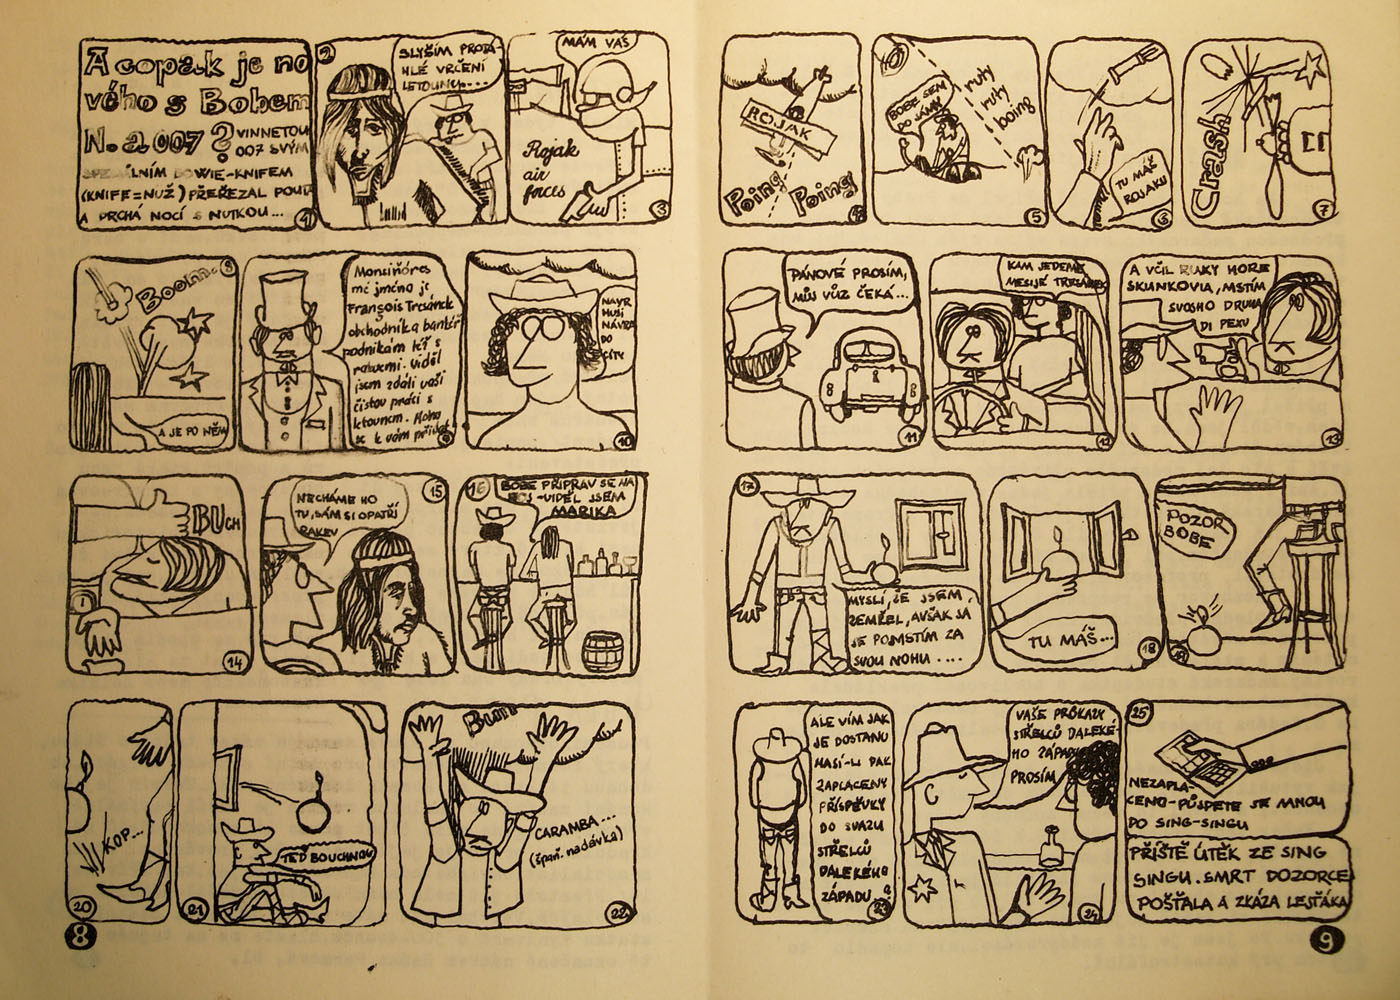 A copak je no
vého s Bobem
N. a 007 ? VINNETOU
007 SVÝM
LNÍM BOWIE-KNIFEM
(KNIFF=NUŽ) PŘEŘEZAL POUTA
A PRCHÁ NOCÍ S NUTKOU...
1
2
SLYŠÍM PROTÁ-
HLÉ VRČENÍ
LETOUNU....
MÁM VÁS
Rojak
air
forces
3
ROJAK
Poing Poing
4
BOBE SEM
PO JÁMY
ruty
ruty
boing
5
TU MÁŠ
ROJAKU
6
Crash
7
8
Boomm..
A JE PO NĚM
Monsiňóres
mé jméno je
François Tresánek
obchodník a bankéř
podnikám též s
Viděl
jsem zdáli vaši
čistou práci s
letounem.
se k vám přidat
9
NÁVR
HUJI
NÁVRA
DO
CITY
10
PÁNOVÉ PROSÍM,
MŮJ VŮZ ČEKÁ...
8
8
11
KAM JEDEME
MESIJÉ TRESÁNEK
12
A VČIL RUKY HORE
SKUNKOVIA, MSTÍM
SVOJHO DRUHA
DI PEXU
13
BUCH
14
NECHÁME HO
TU, SÁM SI OPATŘÍ
RAKEV
15
16
BOBE PŘIPRAV SE NA
BOJ-VIDĚL JSEM
MARIKA
17
MYSLÍ, ŽE JSEM
ZEMŘEL, AVŠAK JÁ
SE POMSTÍM ZA
SVOU NOHU ....
TU MÁŠ...
18
POZOR
BOBE
19
KOP...
20
TEĎ BOUCHNOU
21
Bum
CARAMBA...
(špaň. nadávka)
22
ALE VÍM JAK
JE DOSTANU
MAJÍ-LI PAK
ZAPLACENY
PŘÍSPĚVKY
DO SVAZU
STŘELCŮ
DALEKÉHO
ZÁPADU ?
23
VAŠE PRŮKAZY
STŘELCŮ DALEKÉ-
HO ZÁPADU
PROSÍM
24
25
NEZAPLA-
CENO-PŮJDETE SE MNOU
DO SING-SINGU
PŘÍŠTĚ ÚTĚK ZE SING
SINGU. SMRT DOZORCE
POŠŤÁLA A ZKÁZA LESŤÁKA
8
9